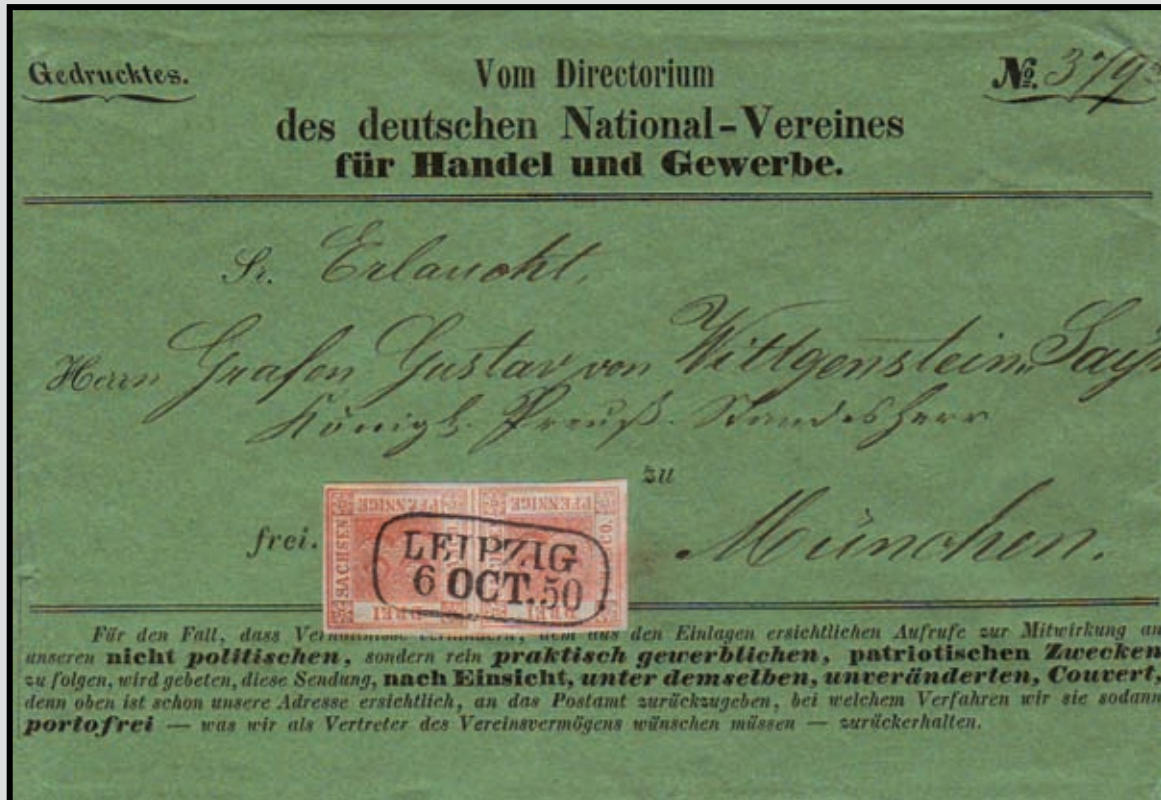 Gedrucktes.
Vom Directorium
No. 379
des deutschen National-Vereines
für Handel und Gewerbe.
Sr. Erlaucht,
Herrn Grafen Gustav von Wittgenstein Sayn
Königl. Preuß. Standesherr
zu
frei.
München.
PFENNIGE PFENNIGE
SACHSEN
LEIPZIG
6 OCT. 50
DREI DREI
Für den Fall, dass dem aus den Einlagen ersichtlichen Aufrufe zur Mitwirkung an
unseren nicht politischen, sondern rein praktisch gewerblichen, patriotischen Zwecken
zu folgen, wird gebeten, diese Sendung, nach Einsicht, unter demselben, unveränderten, Couvert,
denn oben ist schon unsere Adresse ersichtlich, an das Postamt zurückzugeben, bei welchem Verfahren wir sie sodann
portofrei — was wir als Vertreter des Vereinsvermögens wünschen müssen — zurückerhalten.